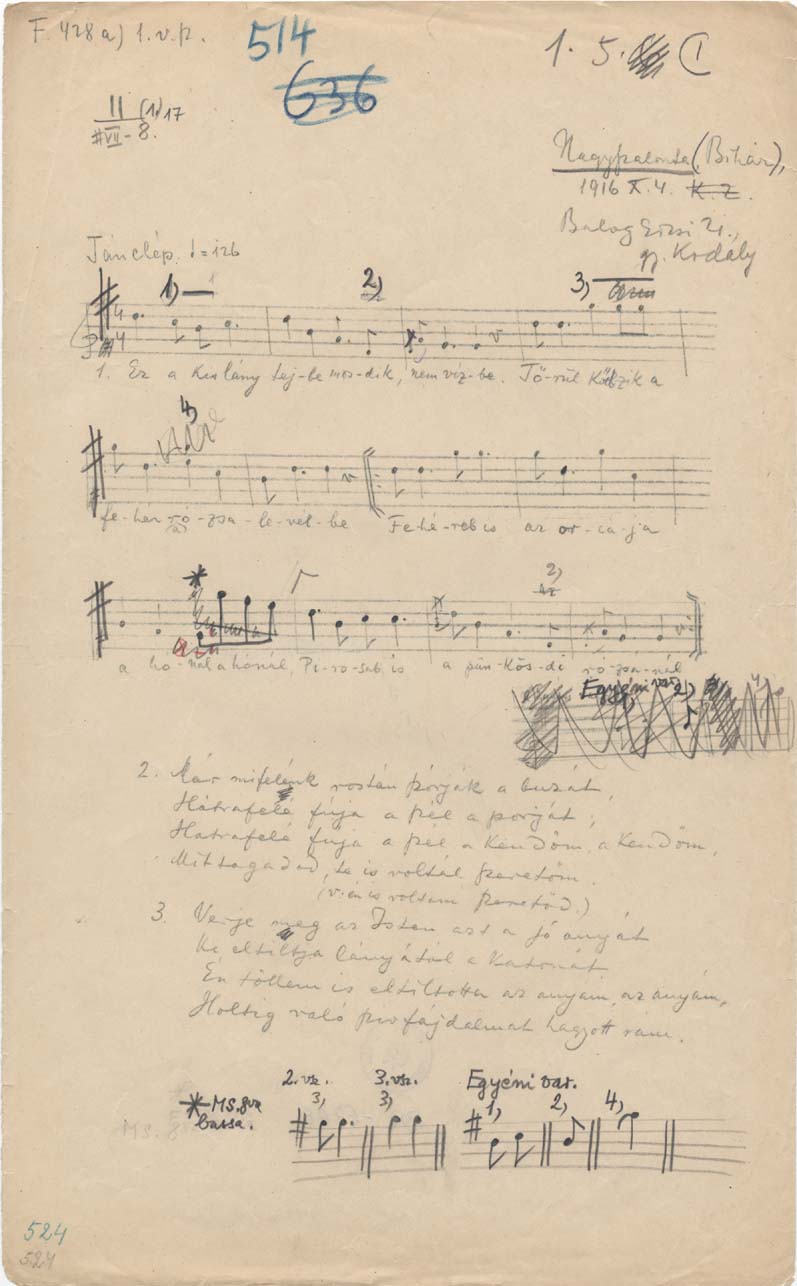 F. 428 a) 1. v. p.
514
636
1. 5. I
II (1) 17
#VII - 8.
Nagyszalonta (Bihar),
1916 X. 4. K. Z.
Balog Erzsi 21.,
gy. Kodály
Tánclép. ♩=126
1) 2) 3)
1. Ez a kislány tej-be mos-dik, nem víz-be. Tö-rül közik a
4)
fe-hér ró-zsa-le-vél-be Fe-hé-rebb is az or-cá-ja
* 2)
a hó-nál a hónál, Pi-ro-sabb is a pün-kös-di ró-zsánál
Egyéni var. 2) 4)
2. Már mifelénk rostán szórják a buzát,
Hátrafelé fújja a szél a porját;
Hátrafelé fújja a szél a kendőm, a kendőm,
Mit tagadod, te is voltál szeretőm.
(v. én is voltam szeretőd.)
3. Verje meg az Isten azt a jó anyát
Ki eltiltja lányától a katonát
Én tőllem is eltiltotta az anyám, az anyám,
Holtig való szívfájdalmat hagyott rám.
2. vsz. 3. vsz. Egyéni var.
* MS. 8va 3) 3) 1) 2) 4)
bassa.
524
524